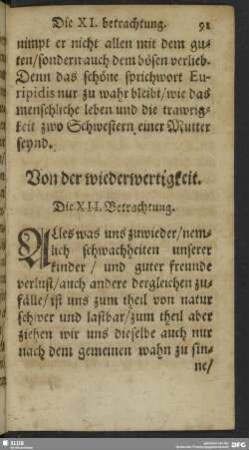 Die XI. betrachtung. 91
nimpt er nicht allen mit dem gu-
ten/sondern auch dem bösen verlieb.
Denn das schöne sprichwort Eu-
ripidis nur zu wahr bleibt/wie das
menschliche leben und die trawrig-
keit zwo Schwestern einer Mutter
seynd.
Von der wiederwertigkeit.
Die XII. Betrachtung.
ALles was uns zuwieder/nem-
lich schwachheiten unserer
kinder/ und guter freunde
verlust/auch andere dergleichen zu-
fälle/ist uns zum theil von natur
schwer und lastbar/zum theil aber
ziehen wir uns dieselbe auch nur
nach dem gemeinen wahn zu sin-
ne/
SLUB
DFG